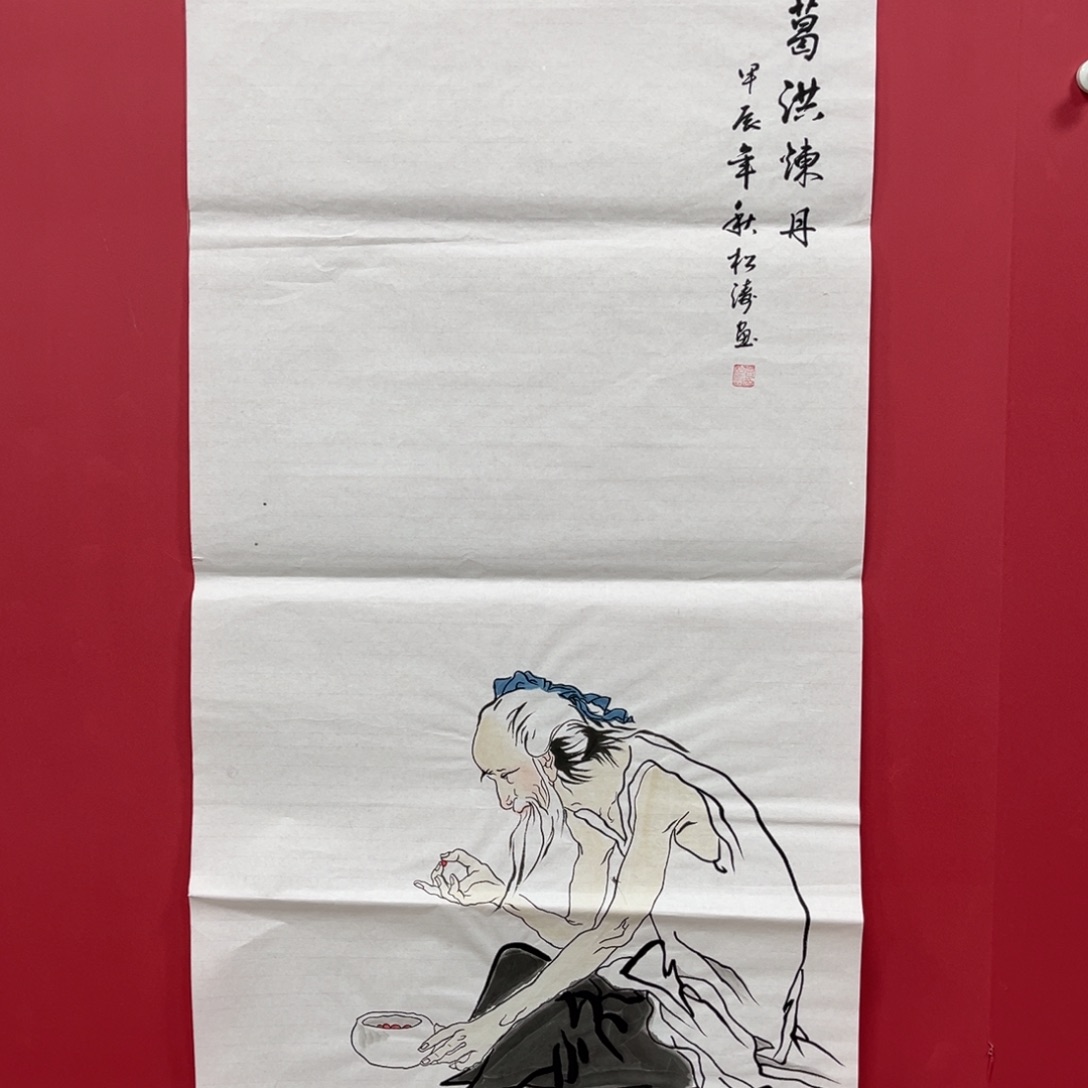 葛洪煉丹
甲辰年秋松濤畫